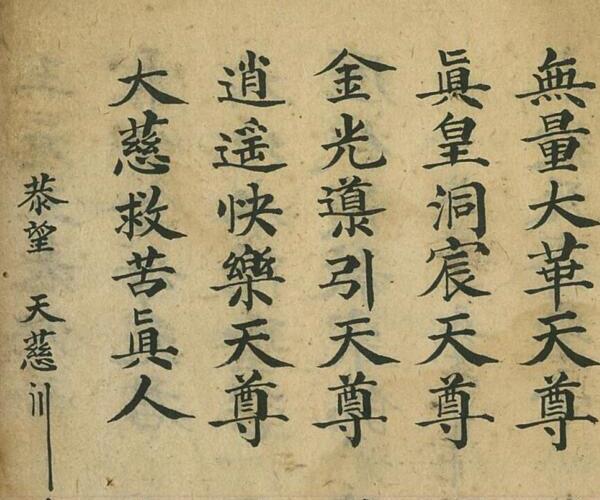 無量大華天尊
眞皇洞宸天尊
金光導引天尊
逍遥快樂天尊
大慈救苦眞人
恭望 天慈